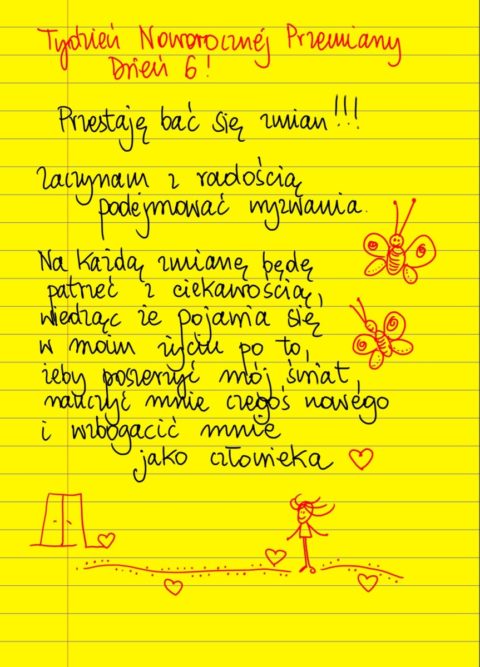 Tydzień Noworocznej Przemiany
Dzień 6!
Przestaję bać się zmian!!!
Zaczynam z radością
podejmować wyzwania.
Na każdą zmianę będę
patrzeć z ciekawością,
wiedząc że pojawia się
w moim życiu po to,
żeby poszerzyć mój świat,
nauczyć mnie czegoś nowego
i wzbogacić mnie
jako człowieka